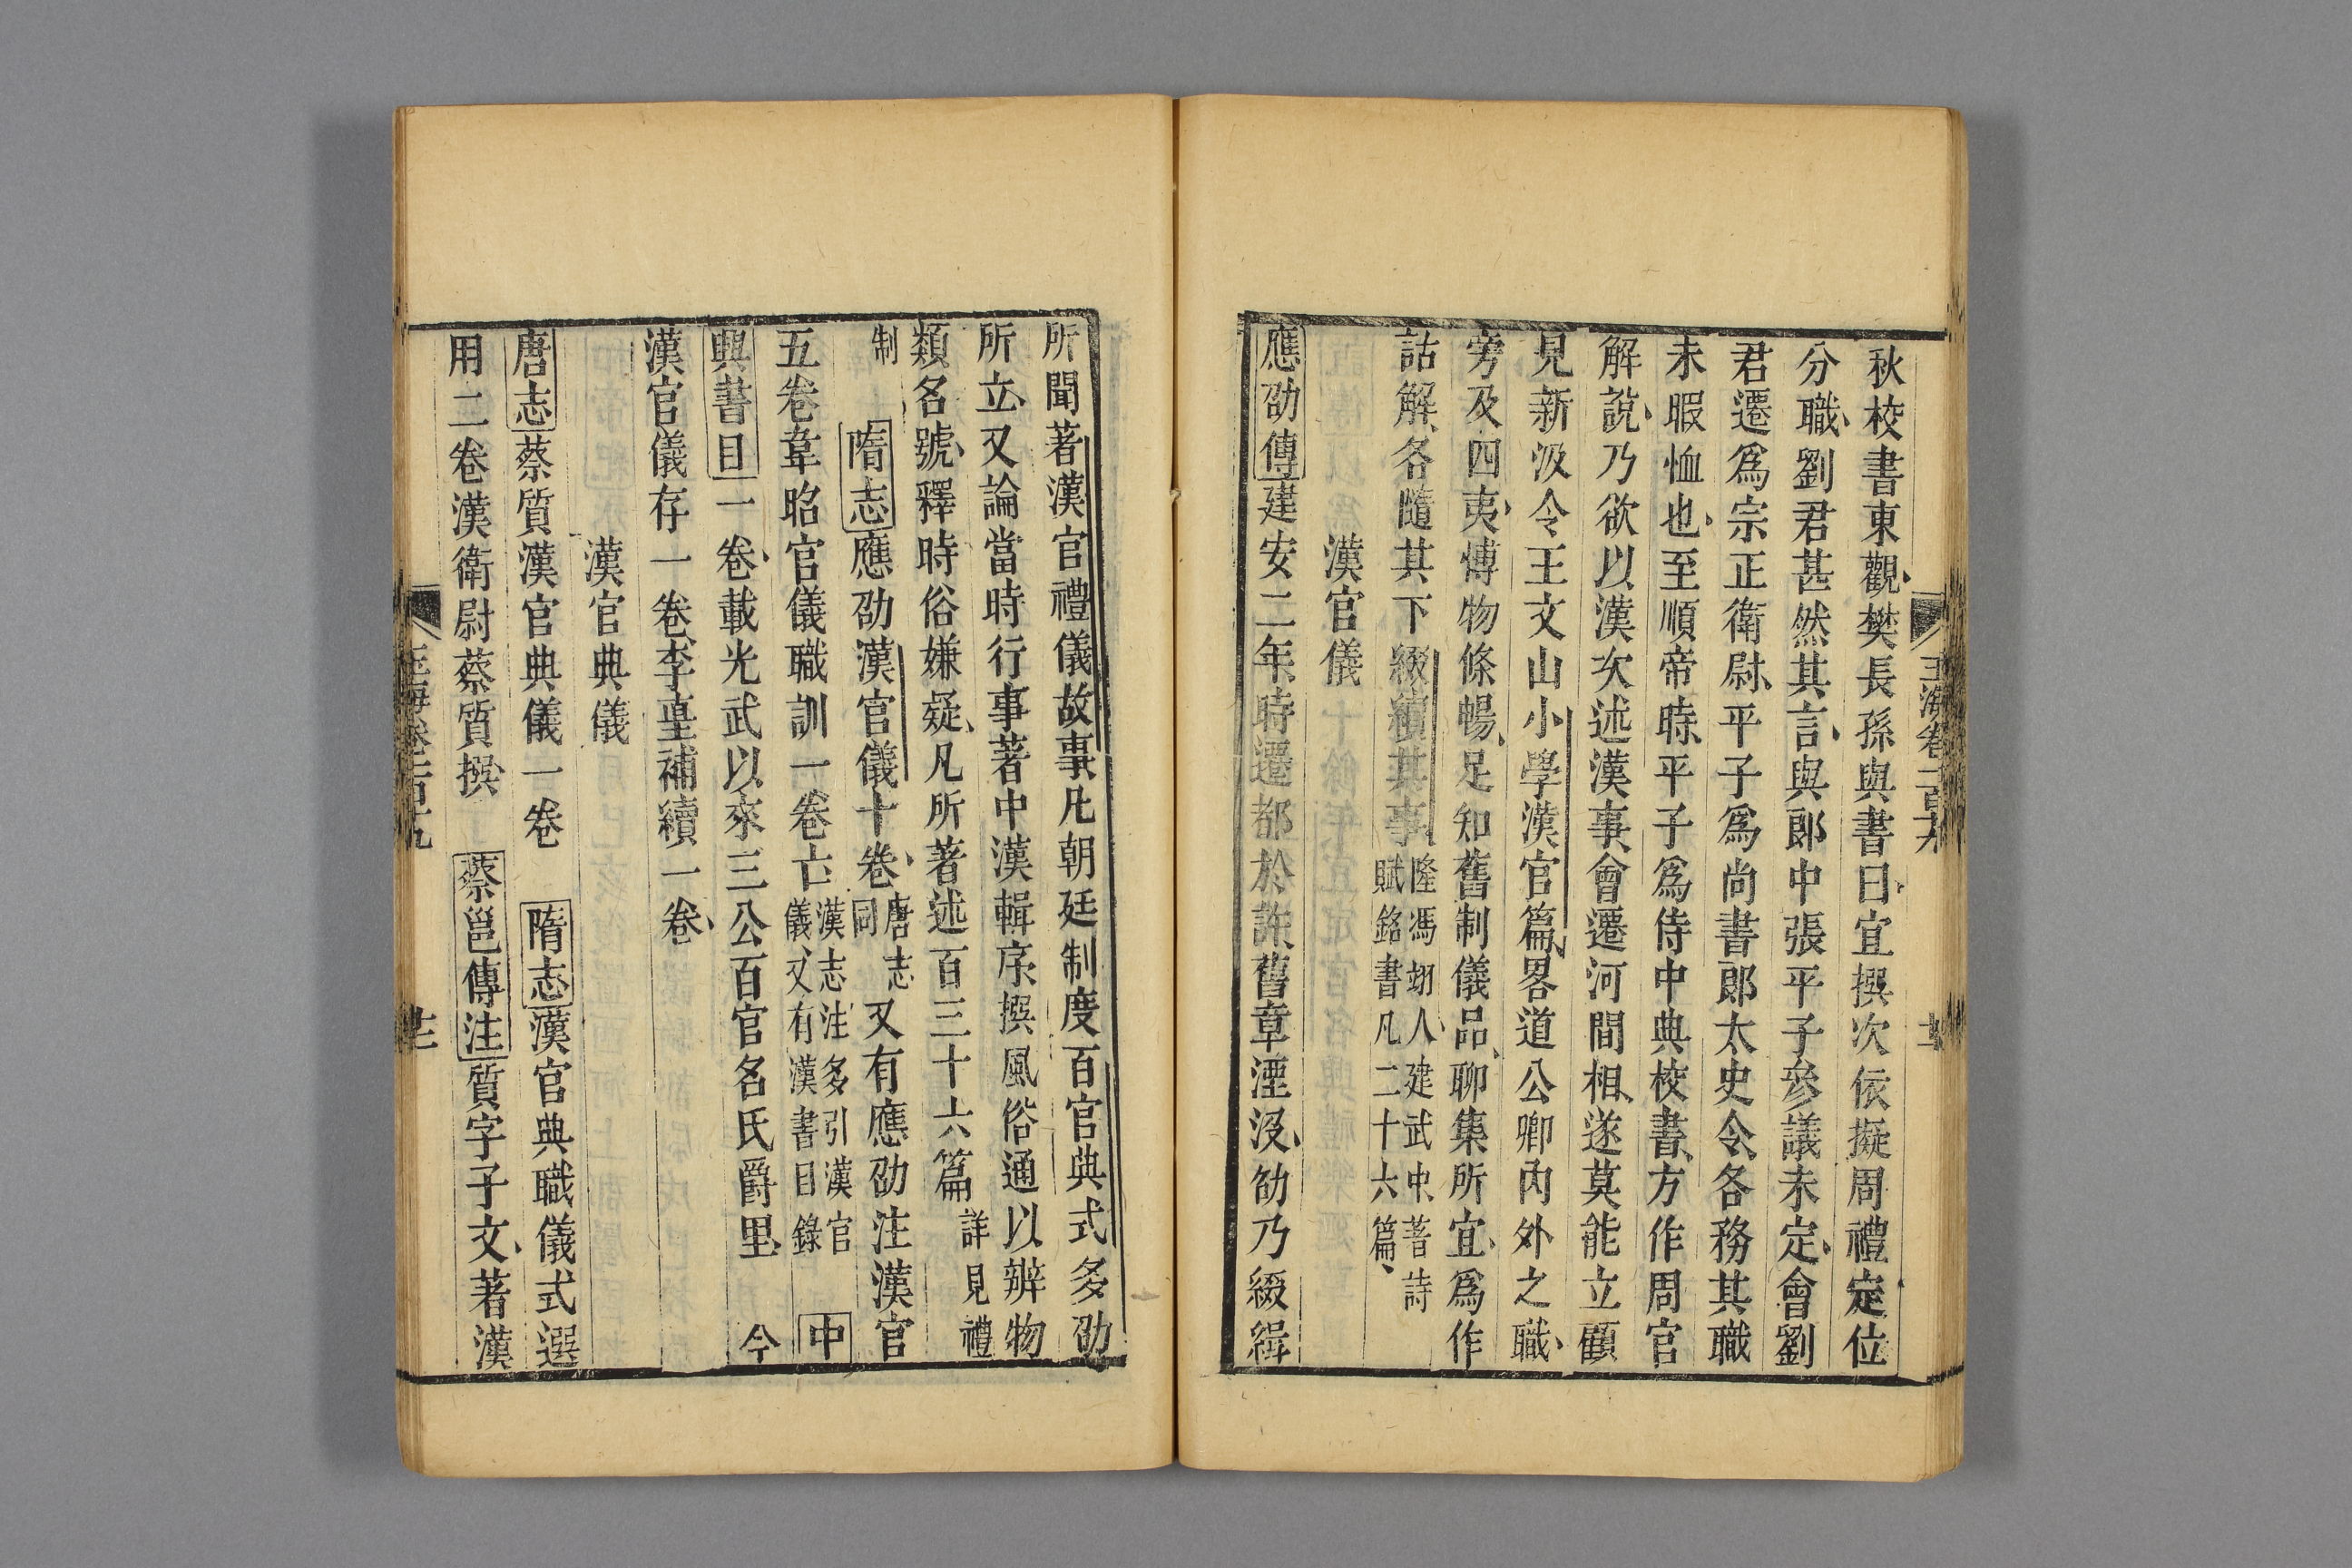 秋校書東觀樊長孫與書曰宜撰次依擬周禮定位
分職劉君甚然其言與郎中張平子參議未定會劉
君遷爲宗正衛尉平子爲尚書郎太史令各務其職
未暇恤也至順帝時平子爲侍中典校書方作周官
解說乃欲以漢次述漢事會遷河間相遂莫能立顧
見新汲令王文山小學漢官篇畧道公卿內外之職
旁及四夷博物條暢足知舊制儀品聊集所宜爲作
詁解各隨其下綴續其事隆馮翊人建武中著詩賦銘書凡二十六篇
漢官儀
應劭傳建安二年時遷都於許舊章湮沒劭乃綴緝
所聞著漢官禮儀故事凡朝廷制度百官典式多劭
所立又論當時行事著中漢輯序撰風俗通以辨物
類名號釋時俗嫌疑凡所著述百三十六篇詳見禮
制 隋志應劭漢官儀十卷唐志同又有應劭注漢官
五卷韋昭官儀職訓一卷亡漢志注多引漢官儀又有漢書目錄 中
興書目一卷載光武以來三公百官名氏爵里 今
漢官儀存一卷李壼補續一卷
漢官典儀
唐志蔡質漢官典儀一卷 隋志漢官典職儀式選
用二卷漢衛尉蔡質撰 蔡邕傳注質字子文著漢